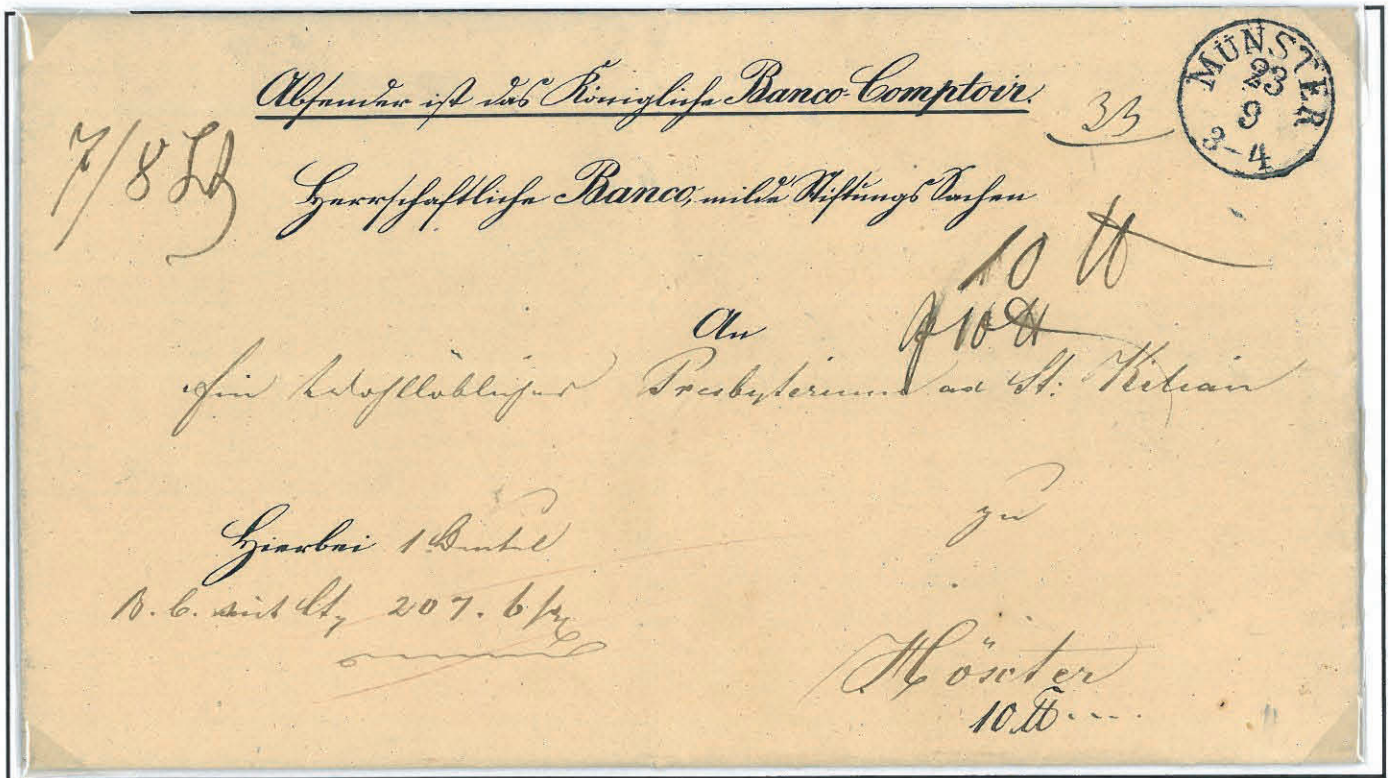 Absender ist das Königliche Banco-Comptoir.
MÜNSTER
23
9
3-4
33
7/8
Herrschaftliche Banco, milde Stiftungs Sachen
10 ℔
10 ℔
An
Ein Wohllöbliches Presbyterium ad St: Kilian
zu
Hierbei 1 Beutel
B. C. mit 207. 6
Höxter
10 ℔